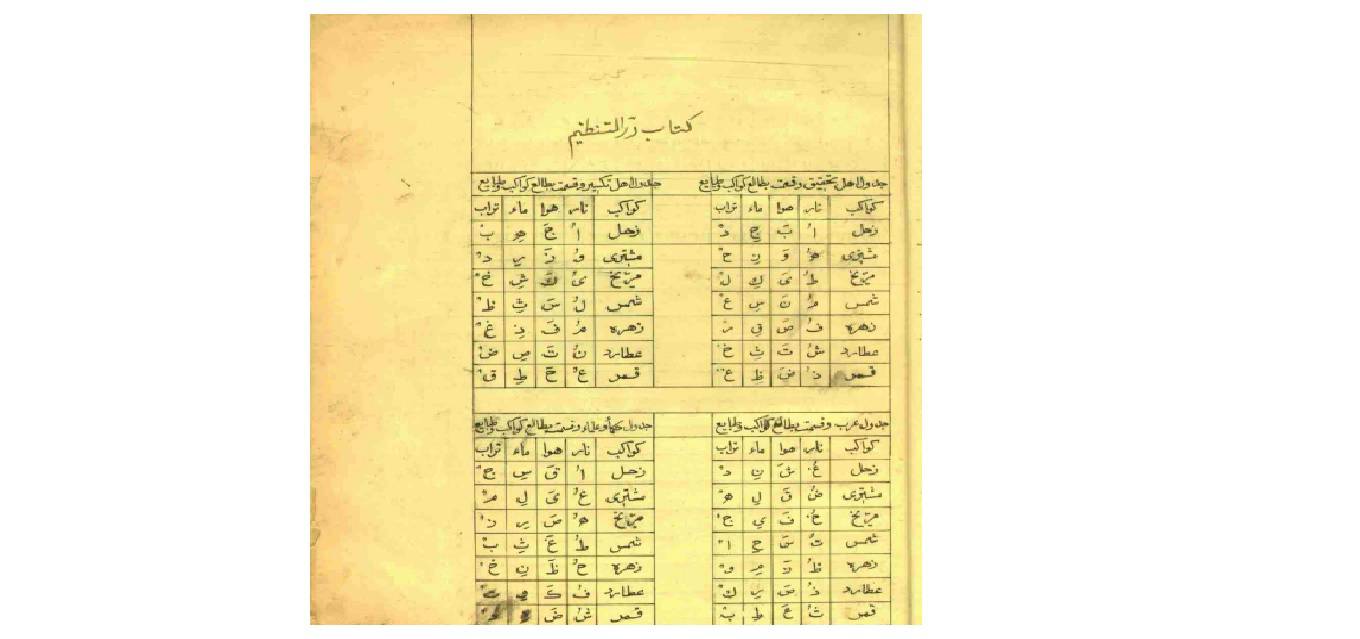 كتاب در التنظيم
جدول اهل تحقيق وقسمت بطالع كواكب وطبايع
كواكب نار هوا ماء تراب
زحل اُ بَ جِ دْ
مشترى هُ وَ زِ حْ
مريخ طُ ىَ كِ لْ
شمس مُ نَ سِ عْ
زهره فُ صَ قِ رْ
عطارد شُ تَ ثِ خْ
قمر ذُ ضَ ظِ غْ
جدول اهل تكسير وقسمت بطالع كواكب وطبايع
كواكب نار هوا ماء تراب
زحل اُ جَ هِ بْ
مشترى وُ زَ رِ دْ
مريخ ىُ كَ شِ خْ
شمس لُ سَ ثِ ظْ
زهره مُ فَ ذِ غْ
عطارد نُ تَ صِ ضْ
قمر عُ حَ طِ قْ
جدول عرب وقسمت بطالع كواكب وطبايع
كواكب نار هوا ماء تراب
زحل غُ شَ نِ دْ
مشترى ضُ قَ لِ هْ
مريخ خُ فَ يِ جْ
شمس تُ سَ حِ اْ
زهره ظُ رَ مِ وْ
عطارد ذُ صَ رِ كْ
قمر ثُ عَ طِ بْ
جدول حكما وعلماء وقسمت بطالع كواكب وطبايع
كواكب نار هوا ماء تراب
زحل اُ قَ سِ جْ
مشترى عُ ىَ لِ مْ
مريخ هُ صَ رِ دْ
شمس طُ غَ ثِ بْ
زهره حُ ظَ نِ خْ
عطارد فُ كَ
قمر شُ ضَ